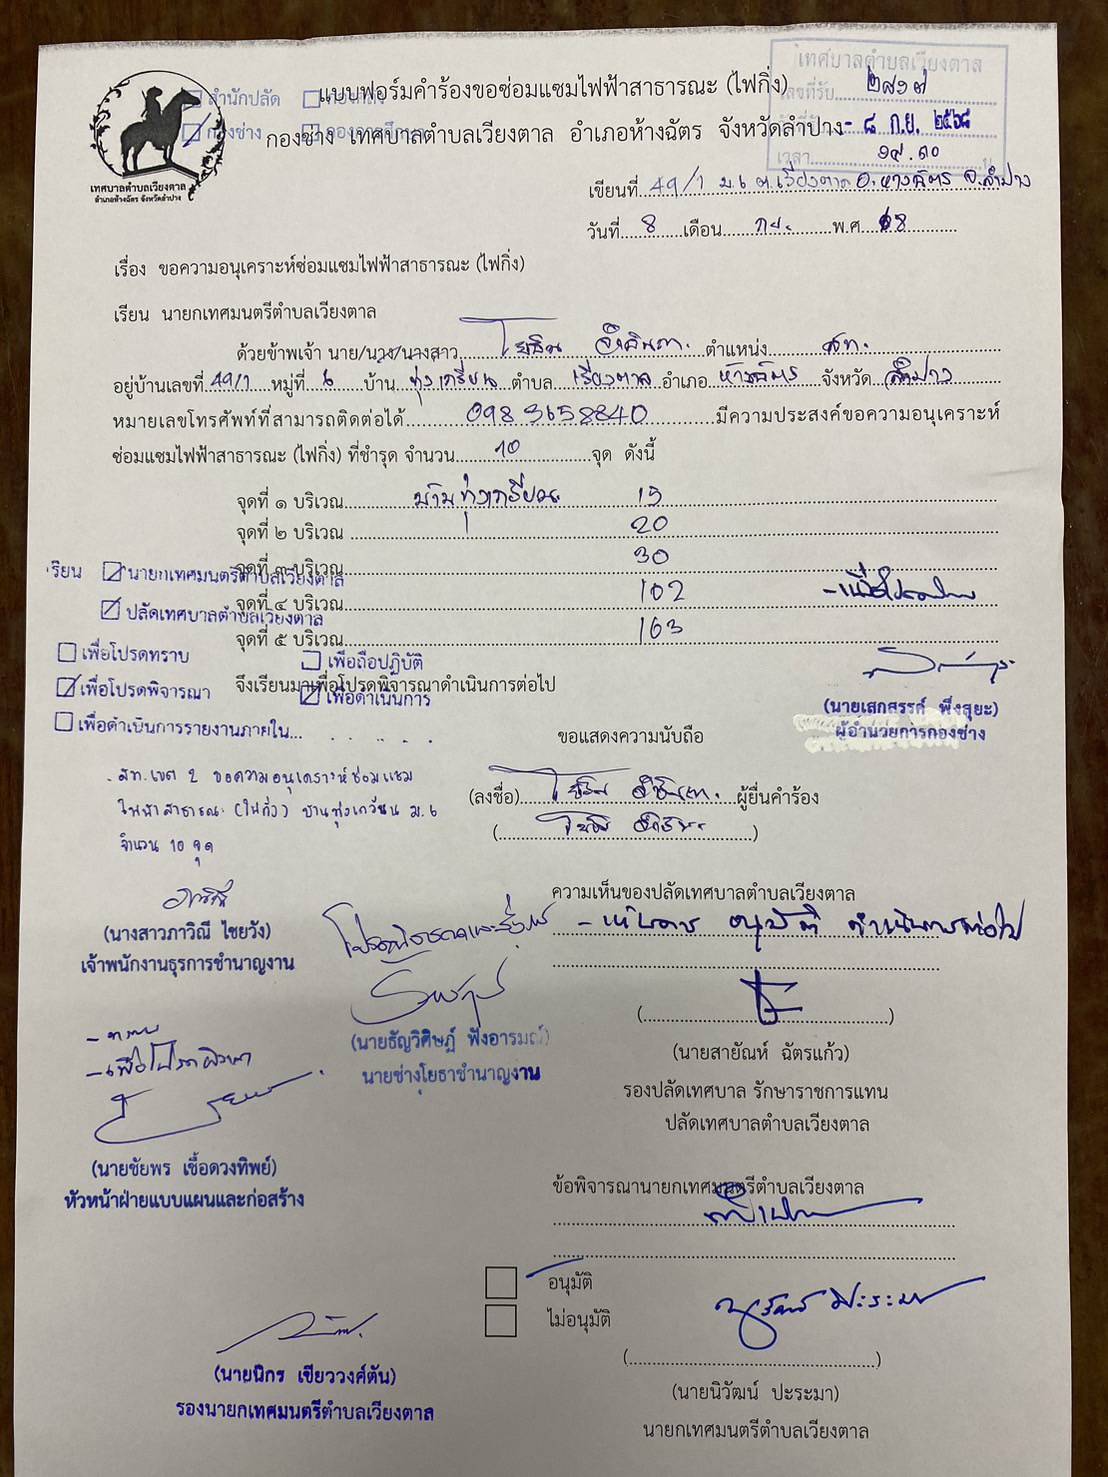 เทศบาลตำบลเวียงตาล
เลขที่รับ
- ๘ ก.ย. ๒๕๖๘
เวลา ๑๙.๓๐ น.
สำนักปลัด
กองช่าง
เทศบาลตำบลเวียงตาล
อำเภอห้างฉัตร จังหวัดลำปาง
แบบฟอร์มคำร้องขอซ่อมแซมไฟฟ้าสาธารณะ (ไฟกิ่ง)
กองช่าง เทศบาลตำบลเวียงตาล อำเภอห้างฉัตร จังหวัดลำปาง
เขียนที่ 49/1 ม.6 ต.เวียงตาล อ.ห้างฉัตร จ.ลำปาง
วันที่ 8 เดือน กย. พ.ศ. 68
เรื่อง ขอความอนุเคราะห์ซ่อมแซมไฟฟ้าสาธารณะ (ไฟกิ่ง)
เรียน นายกเทศมนตรีตำบลเวียงตาล
ด้วยข้าพเจ้า นาย/นาง/นางสาว ตำแหน่ง สท.
อยู่บ้านเลขที่ 49/1 หมู่ที่ 6 บ้าน ทุ่งเกวียน ตำบล เวียงตาล อำเภอ ห้างฉัตร จังหวัด ลำปาง
หมายเลขโทรศัพท์ที่สามารถติดต่อได้ 098 3658840 มีความประสงค์ขอความอนุเคราะห์
ซ่อมแซมไฟฟ้าสาธารณะ (ไฟกิ่ง) ที่ชำรุด จำนวน 10 จุด ดังนี้
จุดที่ ๑ บริเวณ บ้านทุ่งเกวียน 15
จุดที่ ๒ บริเวณ 20
จุดที่ ๓ บริเวณ 30
จุดที่ ๔ บริเวณ 102
จุดที่ ๕ บริเวณ 103
เรียน นายกเทศมนตรีตำบลเวียงตาล
ปลัดเทศบาลตำบลเวียงตาล
เพื่อโปรดทราบ เพื่อถือปฏิบัติ
เพื่อโปรดพิจารณา เพื่อดำเนินการ
เพื่อดำเนินการรายงานภายใน
จึงเรียนมาเพื่อโปรดพิจารณาดำเนินการต่อไป
(นายเสกสรรค์ พึ่งสุยะ)
ผู้อำนวยการกองช่าง
ขอแสดงความนับถือ
- สท. เขต 2 ขอความอนุเคราะห์ซ่อมแซม
ไฟฟ้าสาธารณะ (ไฟกิ่ง) บ้านทุ่งเกวียน ม.6
จำนวน 10 จุด
(ลงชื่อ) ผู้ยื่นคำร้อง
(นางสาวภาวิณี ไชยวัง)
เจ้าพนักงานธุรการชำนาญงาน
ความเห็นของปลัดเทศบาลตำบลเวียงตาล
- เห็นควร อนุมัติ ดำเนินการต่อไป
(นายธัญวิศิษฎ์ ฟังอารมณ์)
นายช่างโยธาชำนาญงาน
(นายสายัณห์ ฉัตรแก้ว)
รองปลัดเทศบาล รักษาราชการแทน
ปลัดเทศบาลตำบลเวียงตาล
- ทราบ
- เพื่อโปรดพิจารณา
(นายชัยพร เชื้อดวงทิพย์)
หัวหน้าฝ่ายแบบแผนและก่อสร้าง
ข้อพิจารณานายกเทศมนตรีตำบลเวียงตาล
อนุมัติ
ไม่อนุมัติ
(นายนิกร เขียววงศ์ตัน)
รองนายกเทศมนตรีตำบลเวียงตาล
(นายนิวัฒน์ ปะระมา)
นายกเทศมนตรีตำบลเวียงตาล